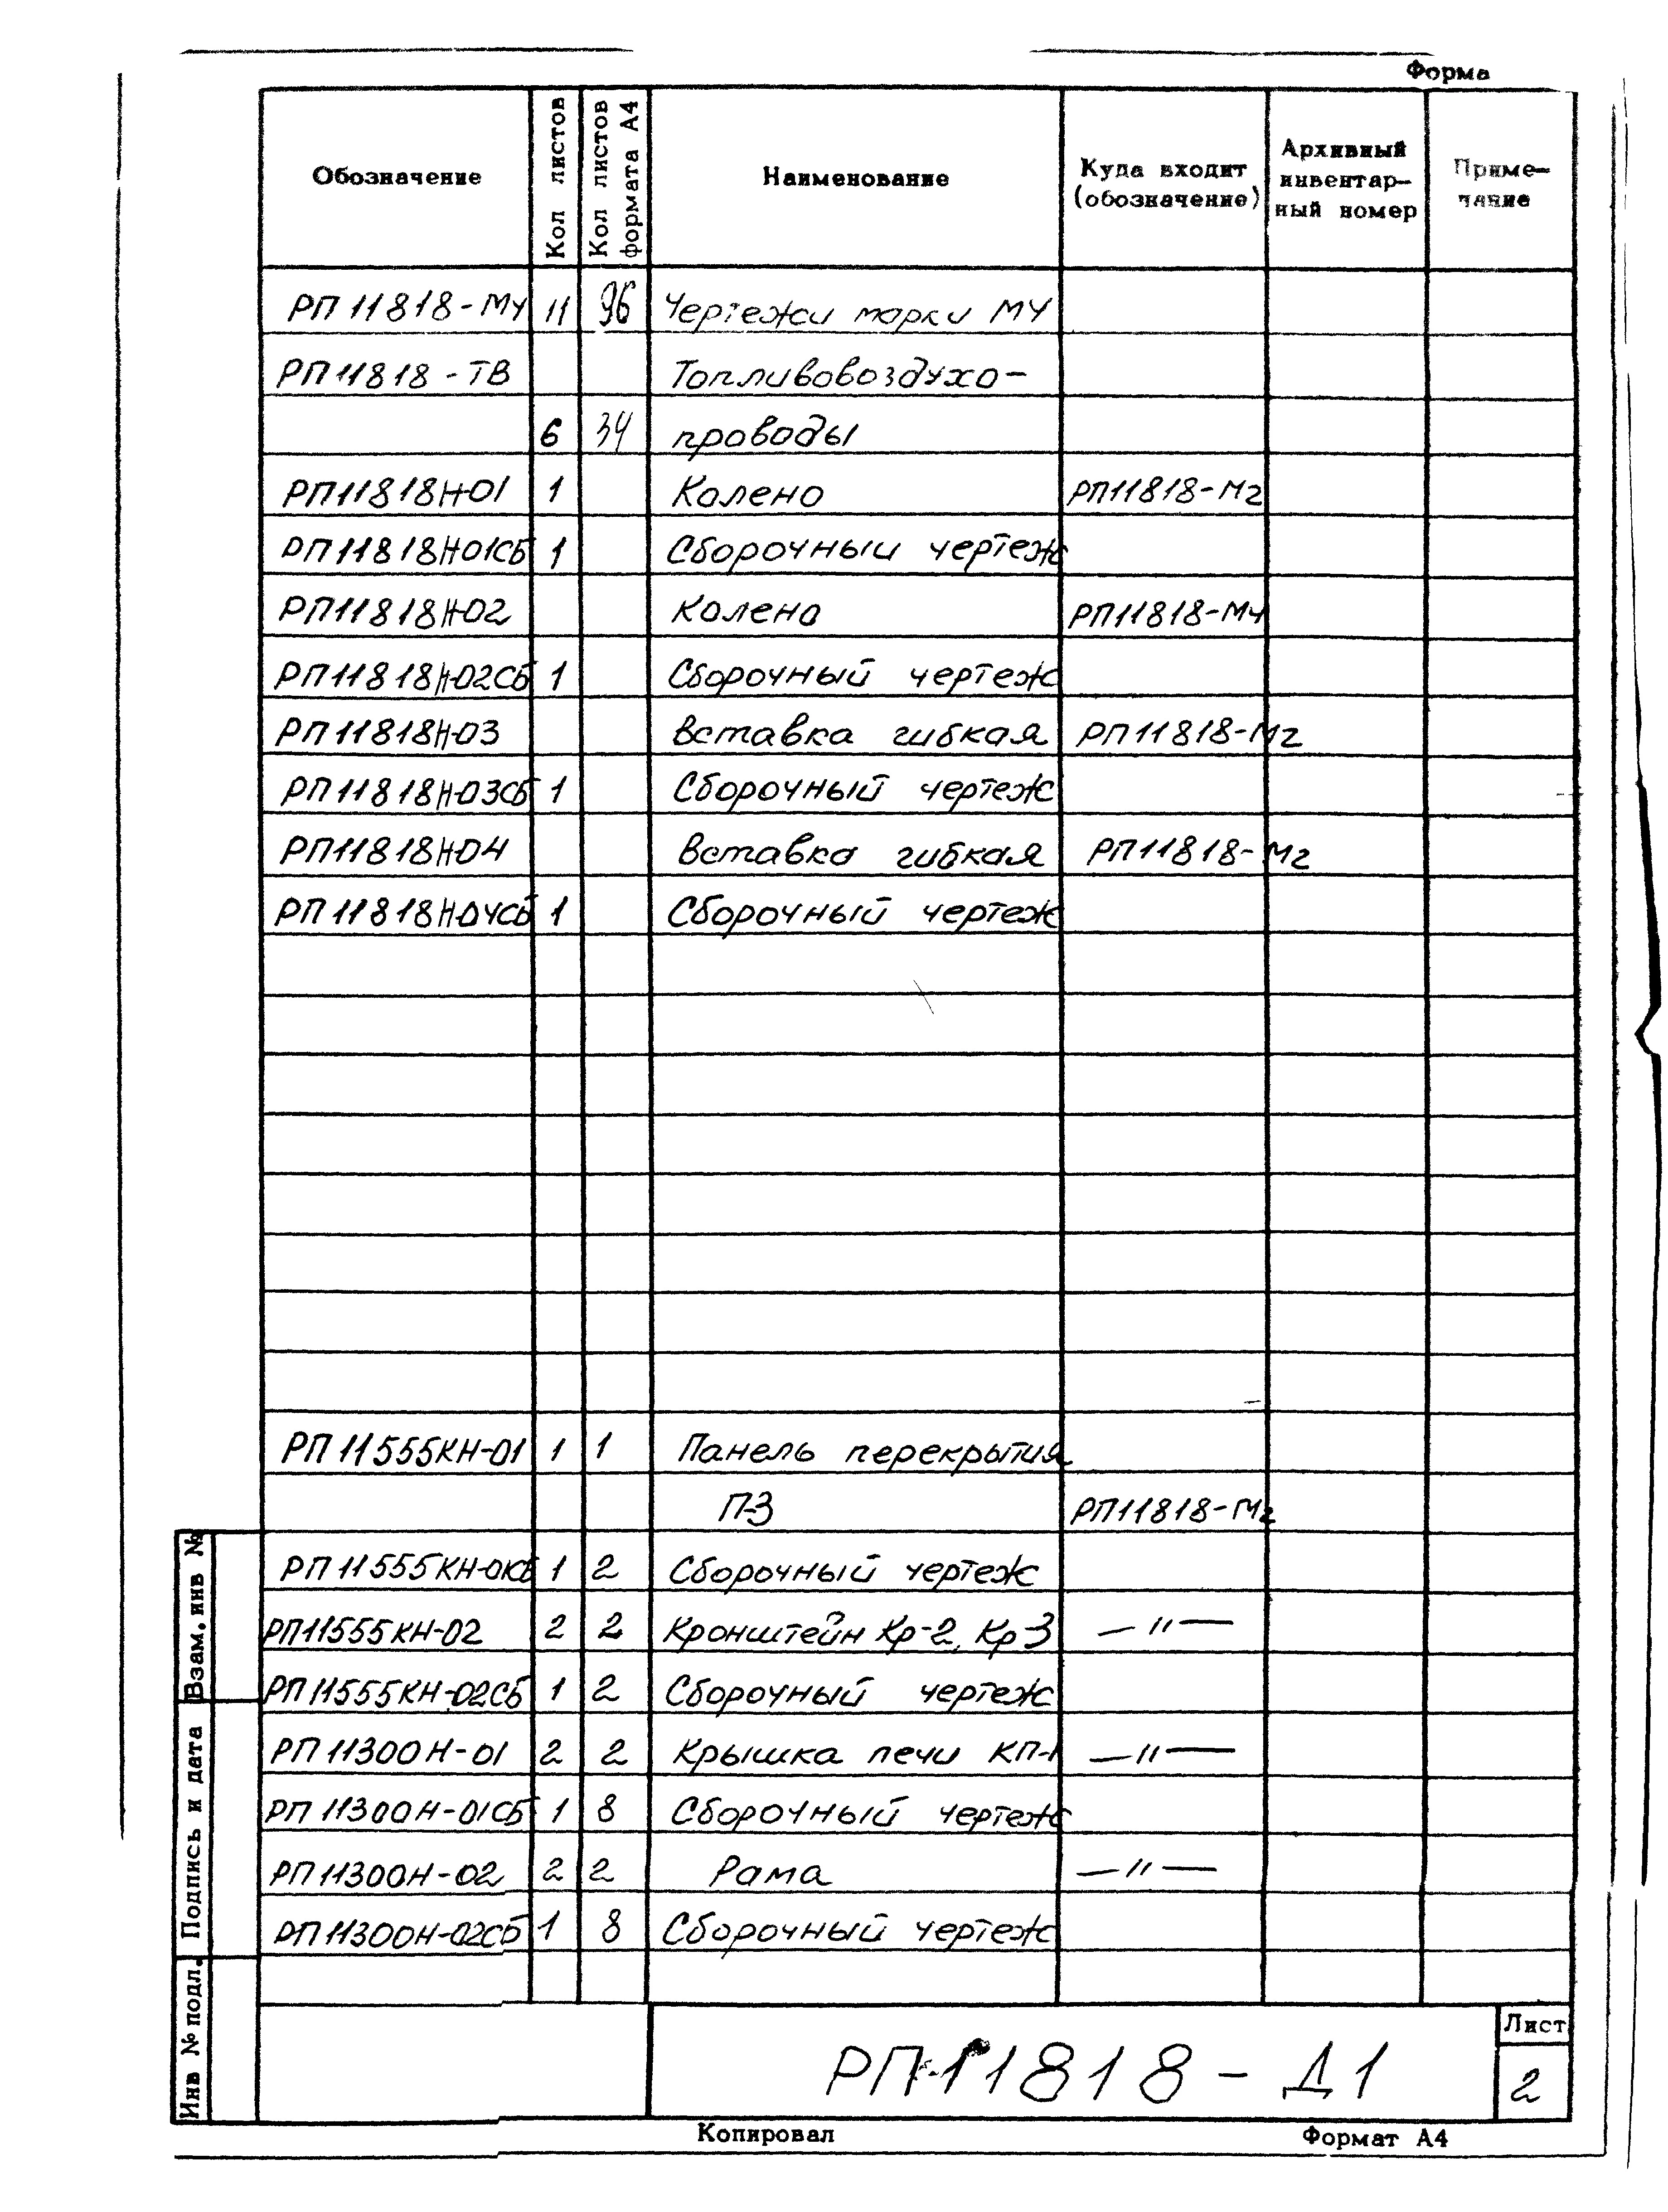 Форма
Обозначение | Кол листов | Кол листов формата А4 | Наименование | Куда входит (обозначение) | Архивный инвентар- ный номер | Приме- чание
РП 11818-МЧ | 11 | 96 | Чертежи марки МЧ
РП 11818-ТВ | Топливовоздухо-
6 | 34 | проводы
РП11818Н-01 | 1 | Колено | РП11818-Мч
РП11818Н01СБ | 1 | Сборочный чертеж
РП11818Н-02 | Колено | РП11818-Мч
РП11818Н-02СБ | 1 | Сборочный чертеж
РП11818Н-03 | Вставка гибкая | РП11818-Мч
РП11818Н-03СБ | 1 | Сборочный чертеж
РП11818Н-04 | Вставка гибкая | РП11818-Мч
РП11818Н-04СБ | 1 | Сборочный чертеж
РП 11555КН-01 | 1 | 1 | Панель перекрытия
П-3 | РП11818-Мч
РП 11555КН-01СБ | 1 | 2 | Сборочный чертеж
РП11555КН-02 | 2 | 2 | Кронштейн Кр-2, Кр-3 | —"—
РП11555КН-02СБ | 1 | 2 | Сборочный чертеж
РП 11300Н-01 | 2 | 2 | Крышка печи КП-1 | —"—
РП 11300Н-01СБ | 1 | 8 | Сборочный чертеж
РП 11300Н-02 | 2 | 2 | Рама | —"—
РП 11300Н-02СБ | 1 | 8 | Сборочный чертеж
Взам. инв №
Подпись и дата
Инв № подл.
РП-11818-Д1
Лист
2
Копировал
Формат А4